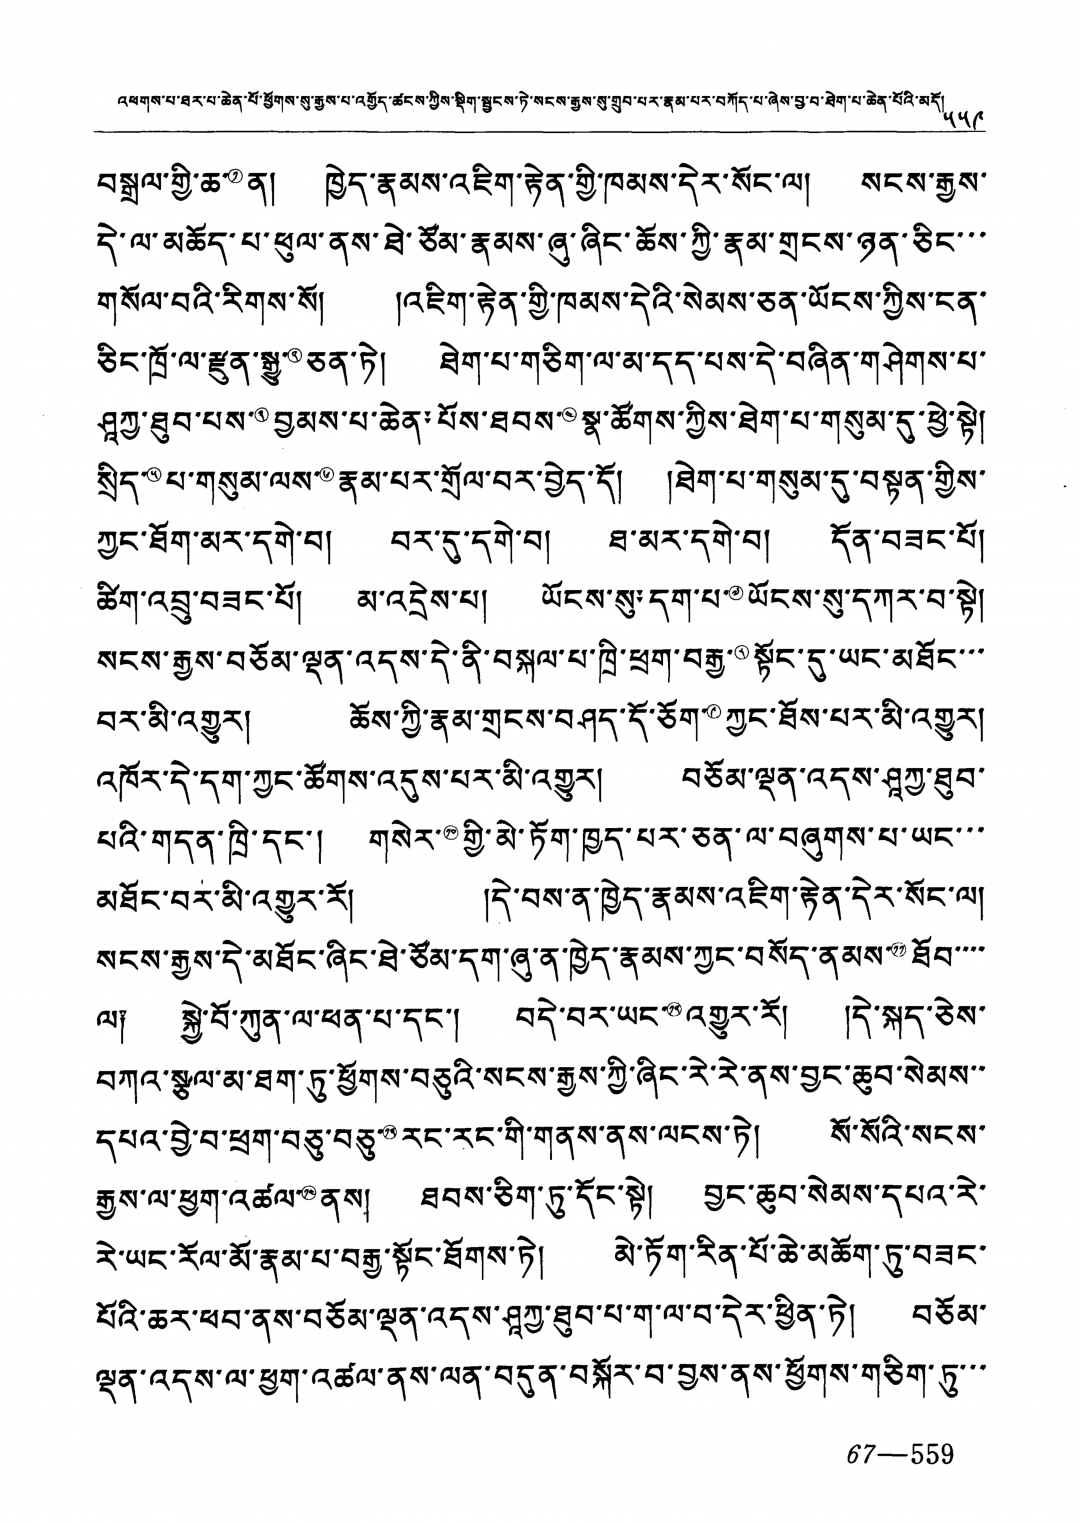 འཕགས་པ་ཐར་པ་ཆེན་པོ་ཕྱོགས་སུ་རྒྱས་པ་འགྱོད་ཚངས་ཀྱིས་སྡིག་སྦྱངས་ཏེ་སངས་རྒྱས་སུ་གྲུབ་པར་རྣམ་པར་བཀོད་པ་ཞེས་བྱ་བ་ཐེག་པ་ཆེན་པོའི་མདོ། ༥༥༩
བསྒྲལ་གྱི་ཆ་①ན། ཁྱེད་རྣམས་འཇིག་རྟེན་གྱི་ཁམས་དེར་སོང་ལ། སངས་རྒྱས་
དེ་ལ་མཆོད་པ་ཕུལ་ནས་ཐེ་ཙོམ་རྣམས་ཞུ་ཞིང་ཆོས་ཀྱི་རྣམ་གྲངས་ཉན་ཅིང་…
གསོལ་བའི་རིགས་སོ། །འཇིག་རྟེན་གྱི་ཁམས་དེའི་སེམས་ཅན་ཡོངས་ཀྱིས་ངན་
ཅིང་ཁྲོ་ལ་རྫུན་སྒྱུ་②ཅན་ཏེ། ཐེག་པ་གཅིག་ལ་མ་དད་པས་དེ་བཞིན་གཤེགས་པ་
ཤཱཀྱ་ཐུབ་པས་③བྱམས་པ་ཆེན་པོས་ཐབས་④སྣ་ཚོགས་ཀྱིས་ཐེག་པ་གསུམ་དུ་ཕྱེ་སྟེ།
སྲིད་⑤པ་གསུམ་ལས་⑥རྣམ་པར་གྲོལ་བར་བྱེད་དོ། །ཐེག་པ་གསུམ་དུ་བསྟན་གྱིས་
ཀྱང་ཐོག་མར་དགེ་བ། བར་དུ་དགེ་བ། ཐ་མར་དགེ་བ། དོན་བཟང་པོ།
ཚིག་འབྲུ་བཟང་པོ། མ་འདྲེས་པ། ཡོངས་སུ་དག་པ་⑦ཡོངས་སུ་དཀར་བ་སྟེ།
སངས་རྒྱས་བཅོམ་ལྡན་འདས་དེ་ནི་བསྐལ་པ་ཁྲི་ཕྲག་བརྒྱ་⑧སྟོང་དུ་ཡང་མཐོང་…
བར་མི་འགྱུར། ཆོས་ཀྱི་རྣམ་གྲངས་བཤད་དོ་ཅོག་⑨ཀྱང་ཐོས་པར་མི་འགྱུར།
འཁོར་དེ་དག་ཀྱང་ཚོགས་འདུས་པར་མི་འགྱུར། བཅོམ་ལྡན་འདས་ཤཱཀྱ་ཐུབ་
པའི་གདན་ཁྲི་དང་། གསེར་⑩གྱི་མེ་ཏོག་ཁྱད་པར་ཅན་ལ་བཞུགས་པ་ཡང་…
མཐོང་བར་མི་འགྱུར་རོ། །དེ་བས་ན་ཁྱེད་རྣམས་འཇིག་རྟེན་དེར་སོང་ལ།
སངས་རྒྱས་དེ་མཐོང་ཞིང་ཐེ་ཙོམ་དག་ཞུ་ན་ཁྱེད་རྣམས་ཀྱང་བསོད་ནམས་⑪ཐོབ་…
ལ། སྐྱེ་བོ་ཀུན་ལ་ཕན་པ་དང་། བདེ་བར་ཡང་⑫འགྱུར་རོ། །དེ་སྐད་ཅེས་
བཀའ་སྩལ་མ་ཐག་ཏུ་ཕྱོགས་བཅུའི་སངས་རྒྱས་ཀྱི་ཞིང་རེ་རེ་ནས་བྱང་ཆུབ་སེམས་
དཔའ་བྱེ་བ་ཕྲག་བཅུ་བཅུ་⑬རང་རང་གི་གནས་ནས་ལངས་ཏེ། སོ་སོའི་སངས་
རྒྱས་ལ་ཕྱག་འཚལ་⑭ནས། ཐབས་ཅིག་ཏུ་དོང་སྟེ། བྱང་ཆུབ་སེམས་དཔའ་རེ་
རེ་ཡང་རོལ་མོ་རྣམ་པ་བརྒྱ་སྟོང་ཐོགས་ཏེ། མེ་ཏོག་རིན་པོ་ཆེ་མཆོག་ཏུ་བཟང་
པོའི་ཆར་ཕབ་ནས་བཅོམ་ལྡན་འདས་ཤཱཀྱ་ཐུབ་པ་ག་ལ་བ་དེར་ཕྱིན་ཏེ། བཅོམ་
ལྡན་འདས་ལ་ཕྱག་འཚལ་ནས་ལན་བདུན་བསྐོར་བ་བྱས་ནས་ཕྱོགས་གཅིག་ཏུ་…
67—559